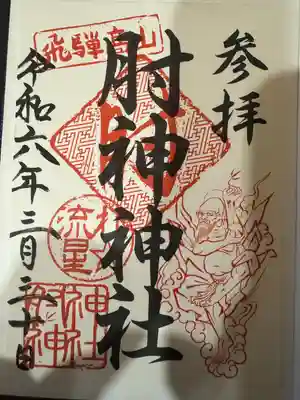 参拝
飛騨高山
肘神神社
流星
肘神神社
令和六年三月三十日